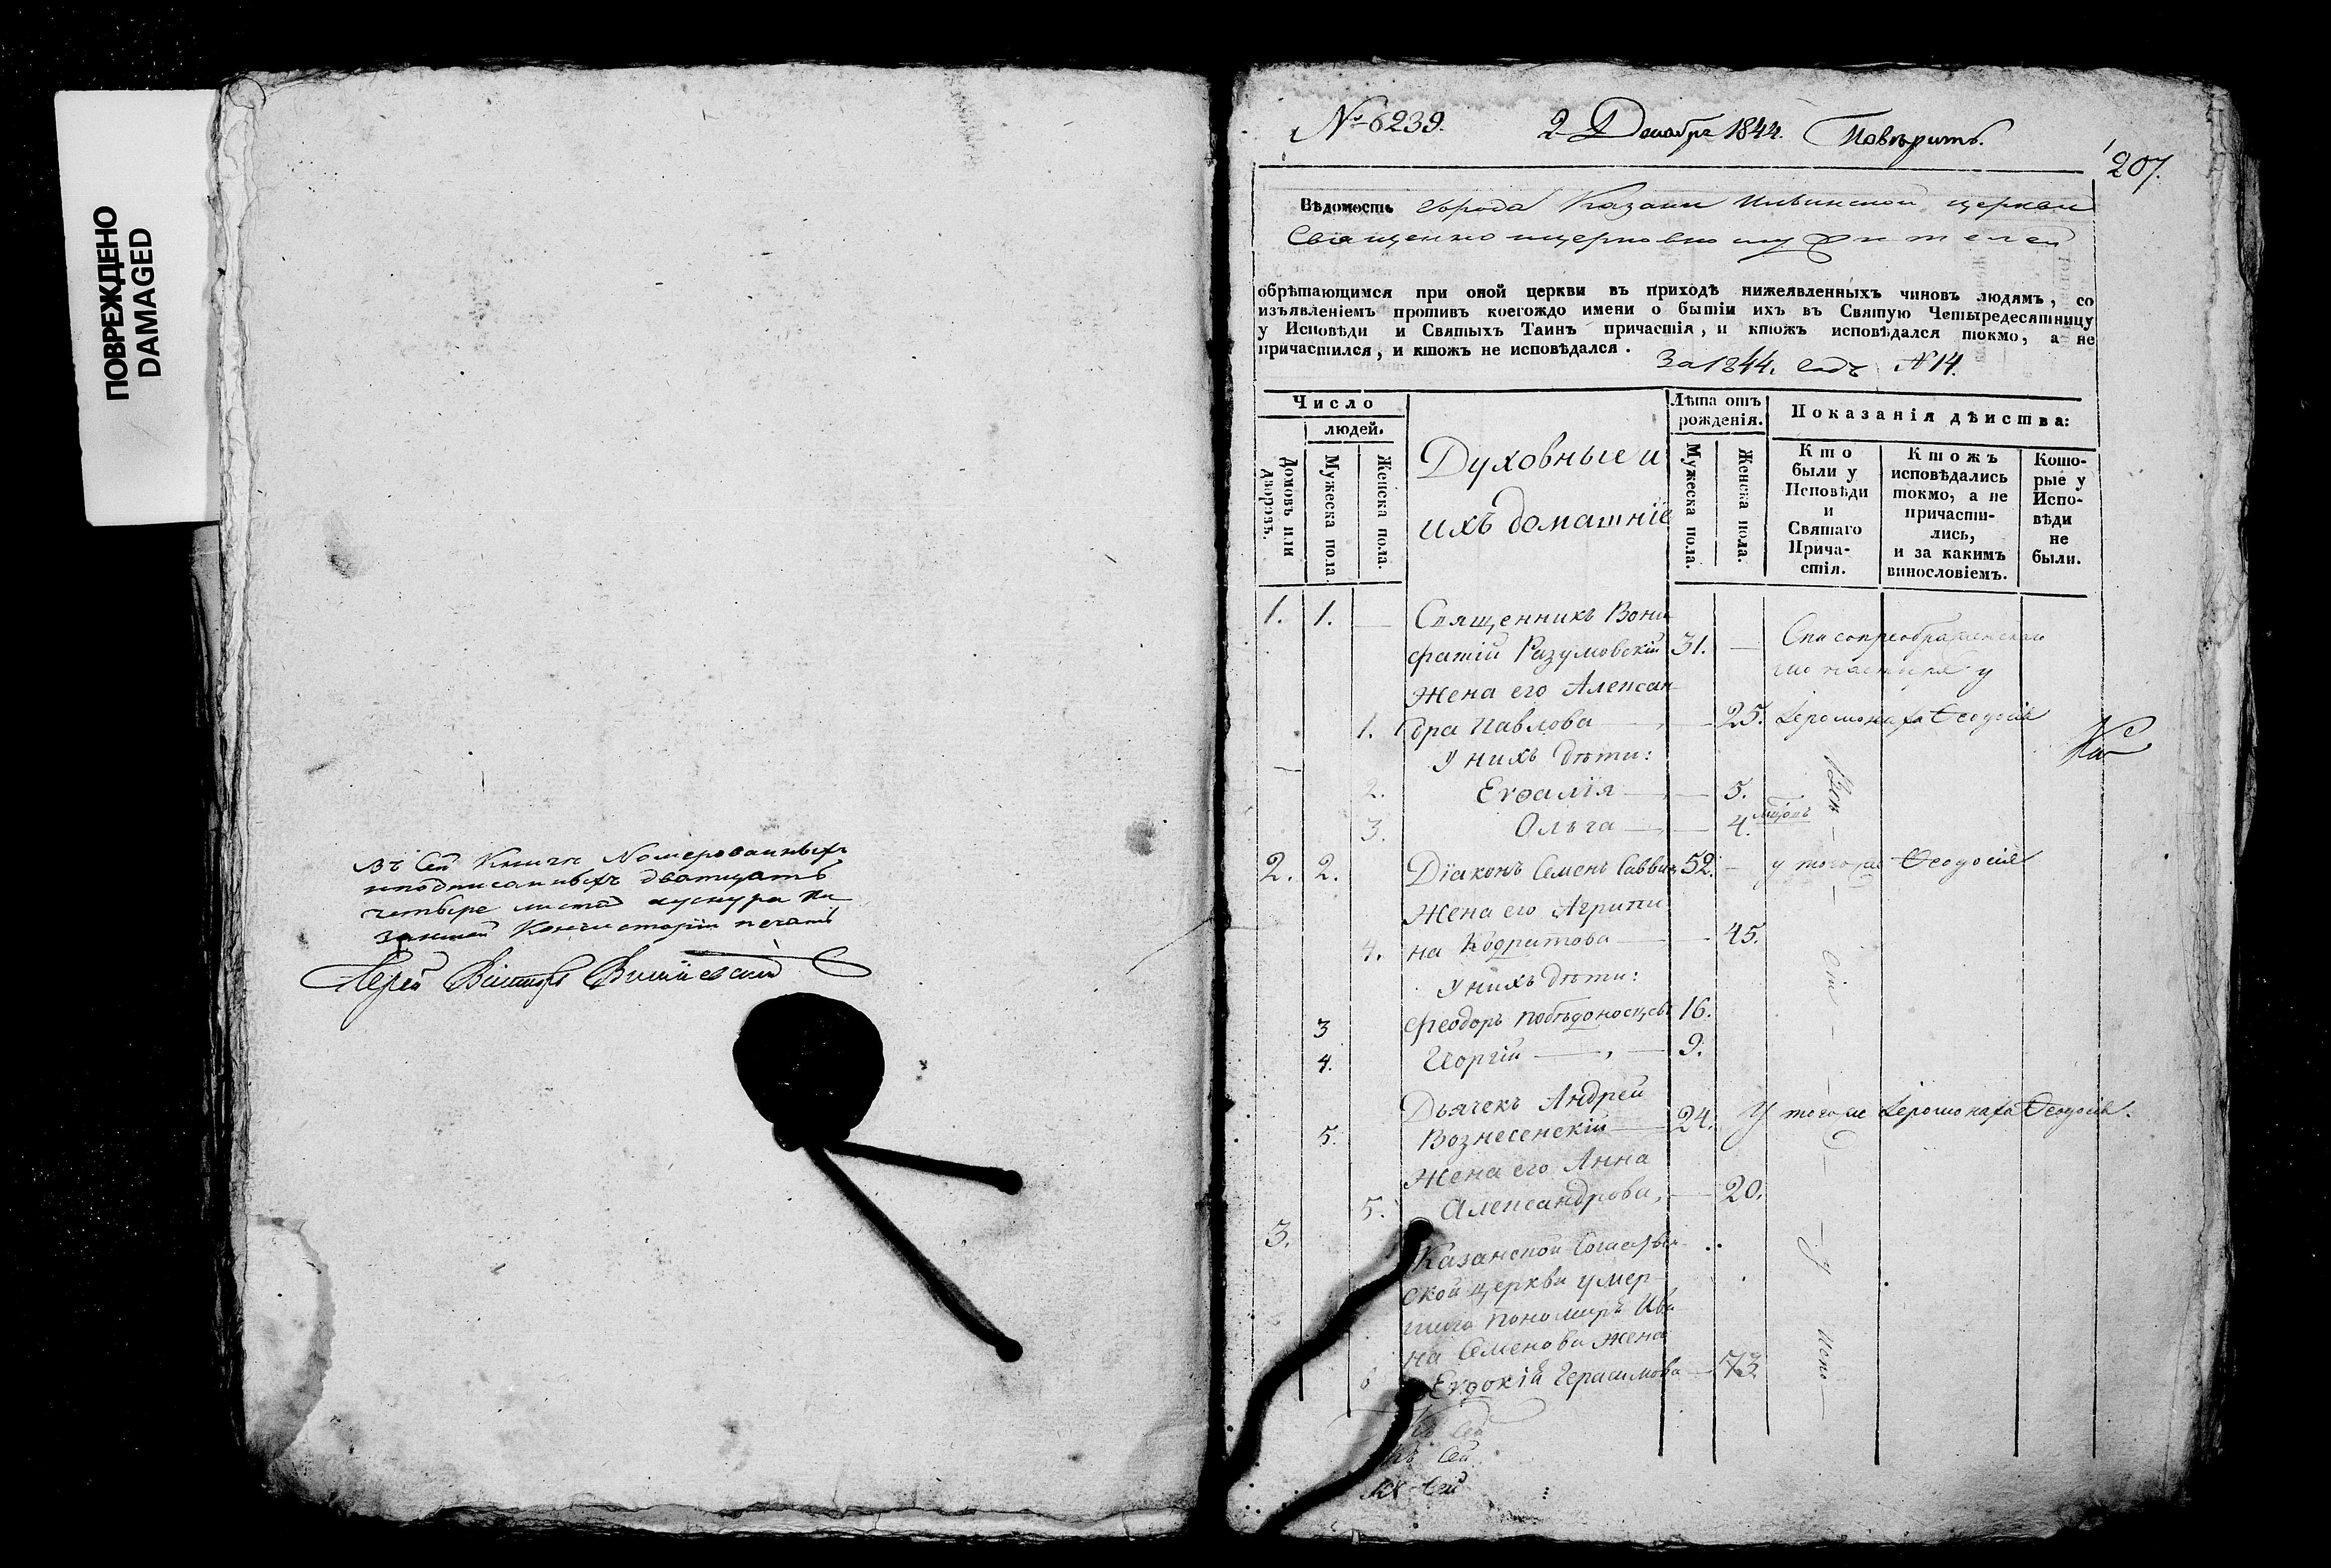 ПОВРЕЖДЕНО
DAMAGED
Въ сей книге номерованныхъ
и подписанныхъ дватцать
четыре листа
Консисторіи печать
Іерей
№ 6239. 2 Декабря 1844. Повѣрить.
207.
Вѣдомость города Казани церкви
обрѣтающимся при оной церкви въ приходѣ нижеявленныхъ чиновъ людямъ, со
изъявленіемъ противъ коегождо имени о бытіи ихъ въ Святую Четыредесятницу
у Исповѣди и Святыхъ Таинъ причастія, и ктожъ исповѣдался токмо, а не
причастился, и ктожъ не исповѣдался.
За 1844. годъ № 14.
Число
людей.
Домовъ или дворовъ.
Мужеска пола.
Женска пола.
Духовные и
ихъ домашніе
Лѣта отъ
рожденія.
Мужеска пола.
Женска пола.
Показанія дѣйства:
Кто
были у
Исповѣди
и
Святаго
Прича-
стія.
Ктожъ
исповѣдались
токмо, а не
причасти-
лись,
и за какимъ
винословіемъ.
Кото-
рые у
Испо-
вѣди
не
были.
1. 1. — Священникъ Вони
фатій Разумовскій 31. — Спасопреображенскаго
Жена его Алексан монастыря у
1. дра Павлова — 25. Іеромонаха Ѳеодосія
У нихъ дѣти:
2. Евѳалія — 5.
3. Ольга — 4.
2. 2. Діаконъ Семенъ Саввинъ 52. — у тогоже Ѳеодосія
Жена его Агрипи
4. на Кодратова — 45.
У нихъ дѣти:
3 Феодоръ Побѣдоносцевъ 16.
4. Георгій — 9.
Дьячекъ Андрей
5. Вознесенскій — 24. У тогоже Іеромонаха Ѳеодосія.
Жена его Анна
5. Александрова, — 20.
3. Казанской
ской церкви умер
шаго пономаря Ива
на Семенова жена
6 Евдокія Герасимова — 73.
Къ сей
Къ сей
Къ сей